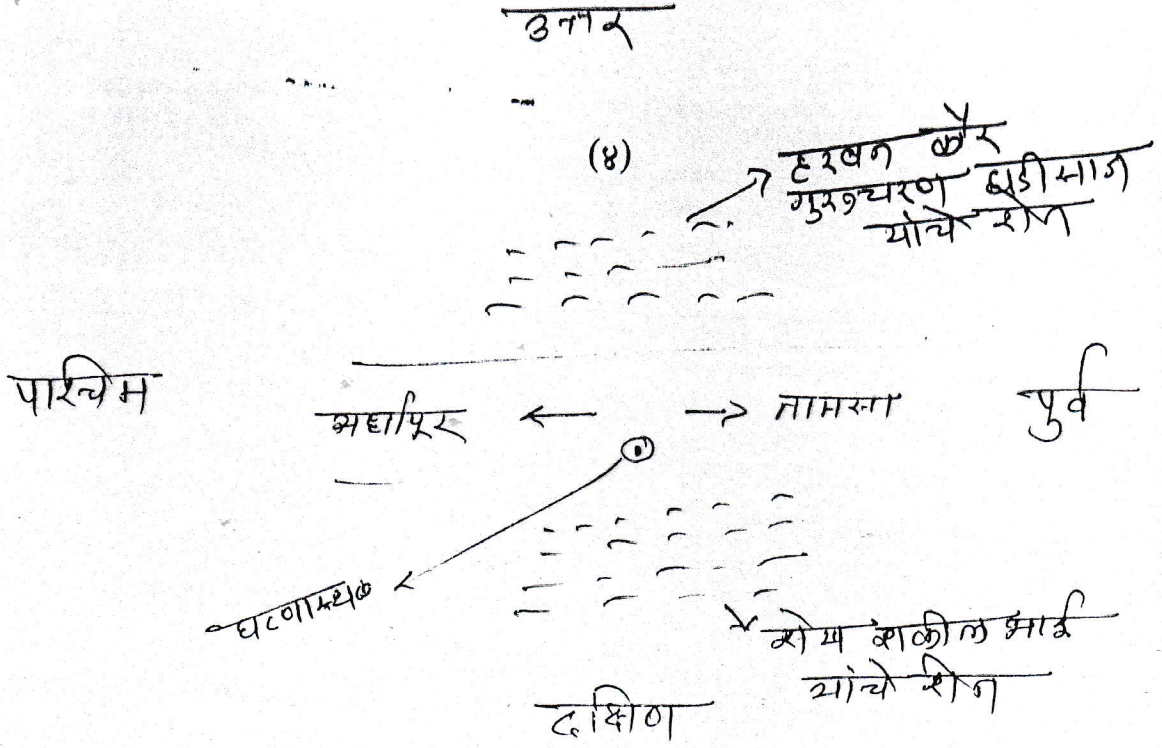 उत्तर
(४)
हरबन कौर
गुरुचरण घडीसाज
यांचे शेत
पश्चिम
अर्धापूर
तामसा
पुर्व
घटनास्थळ
शेख शकील भाई
यांचे शेत
दक्षिण